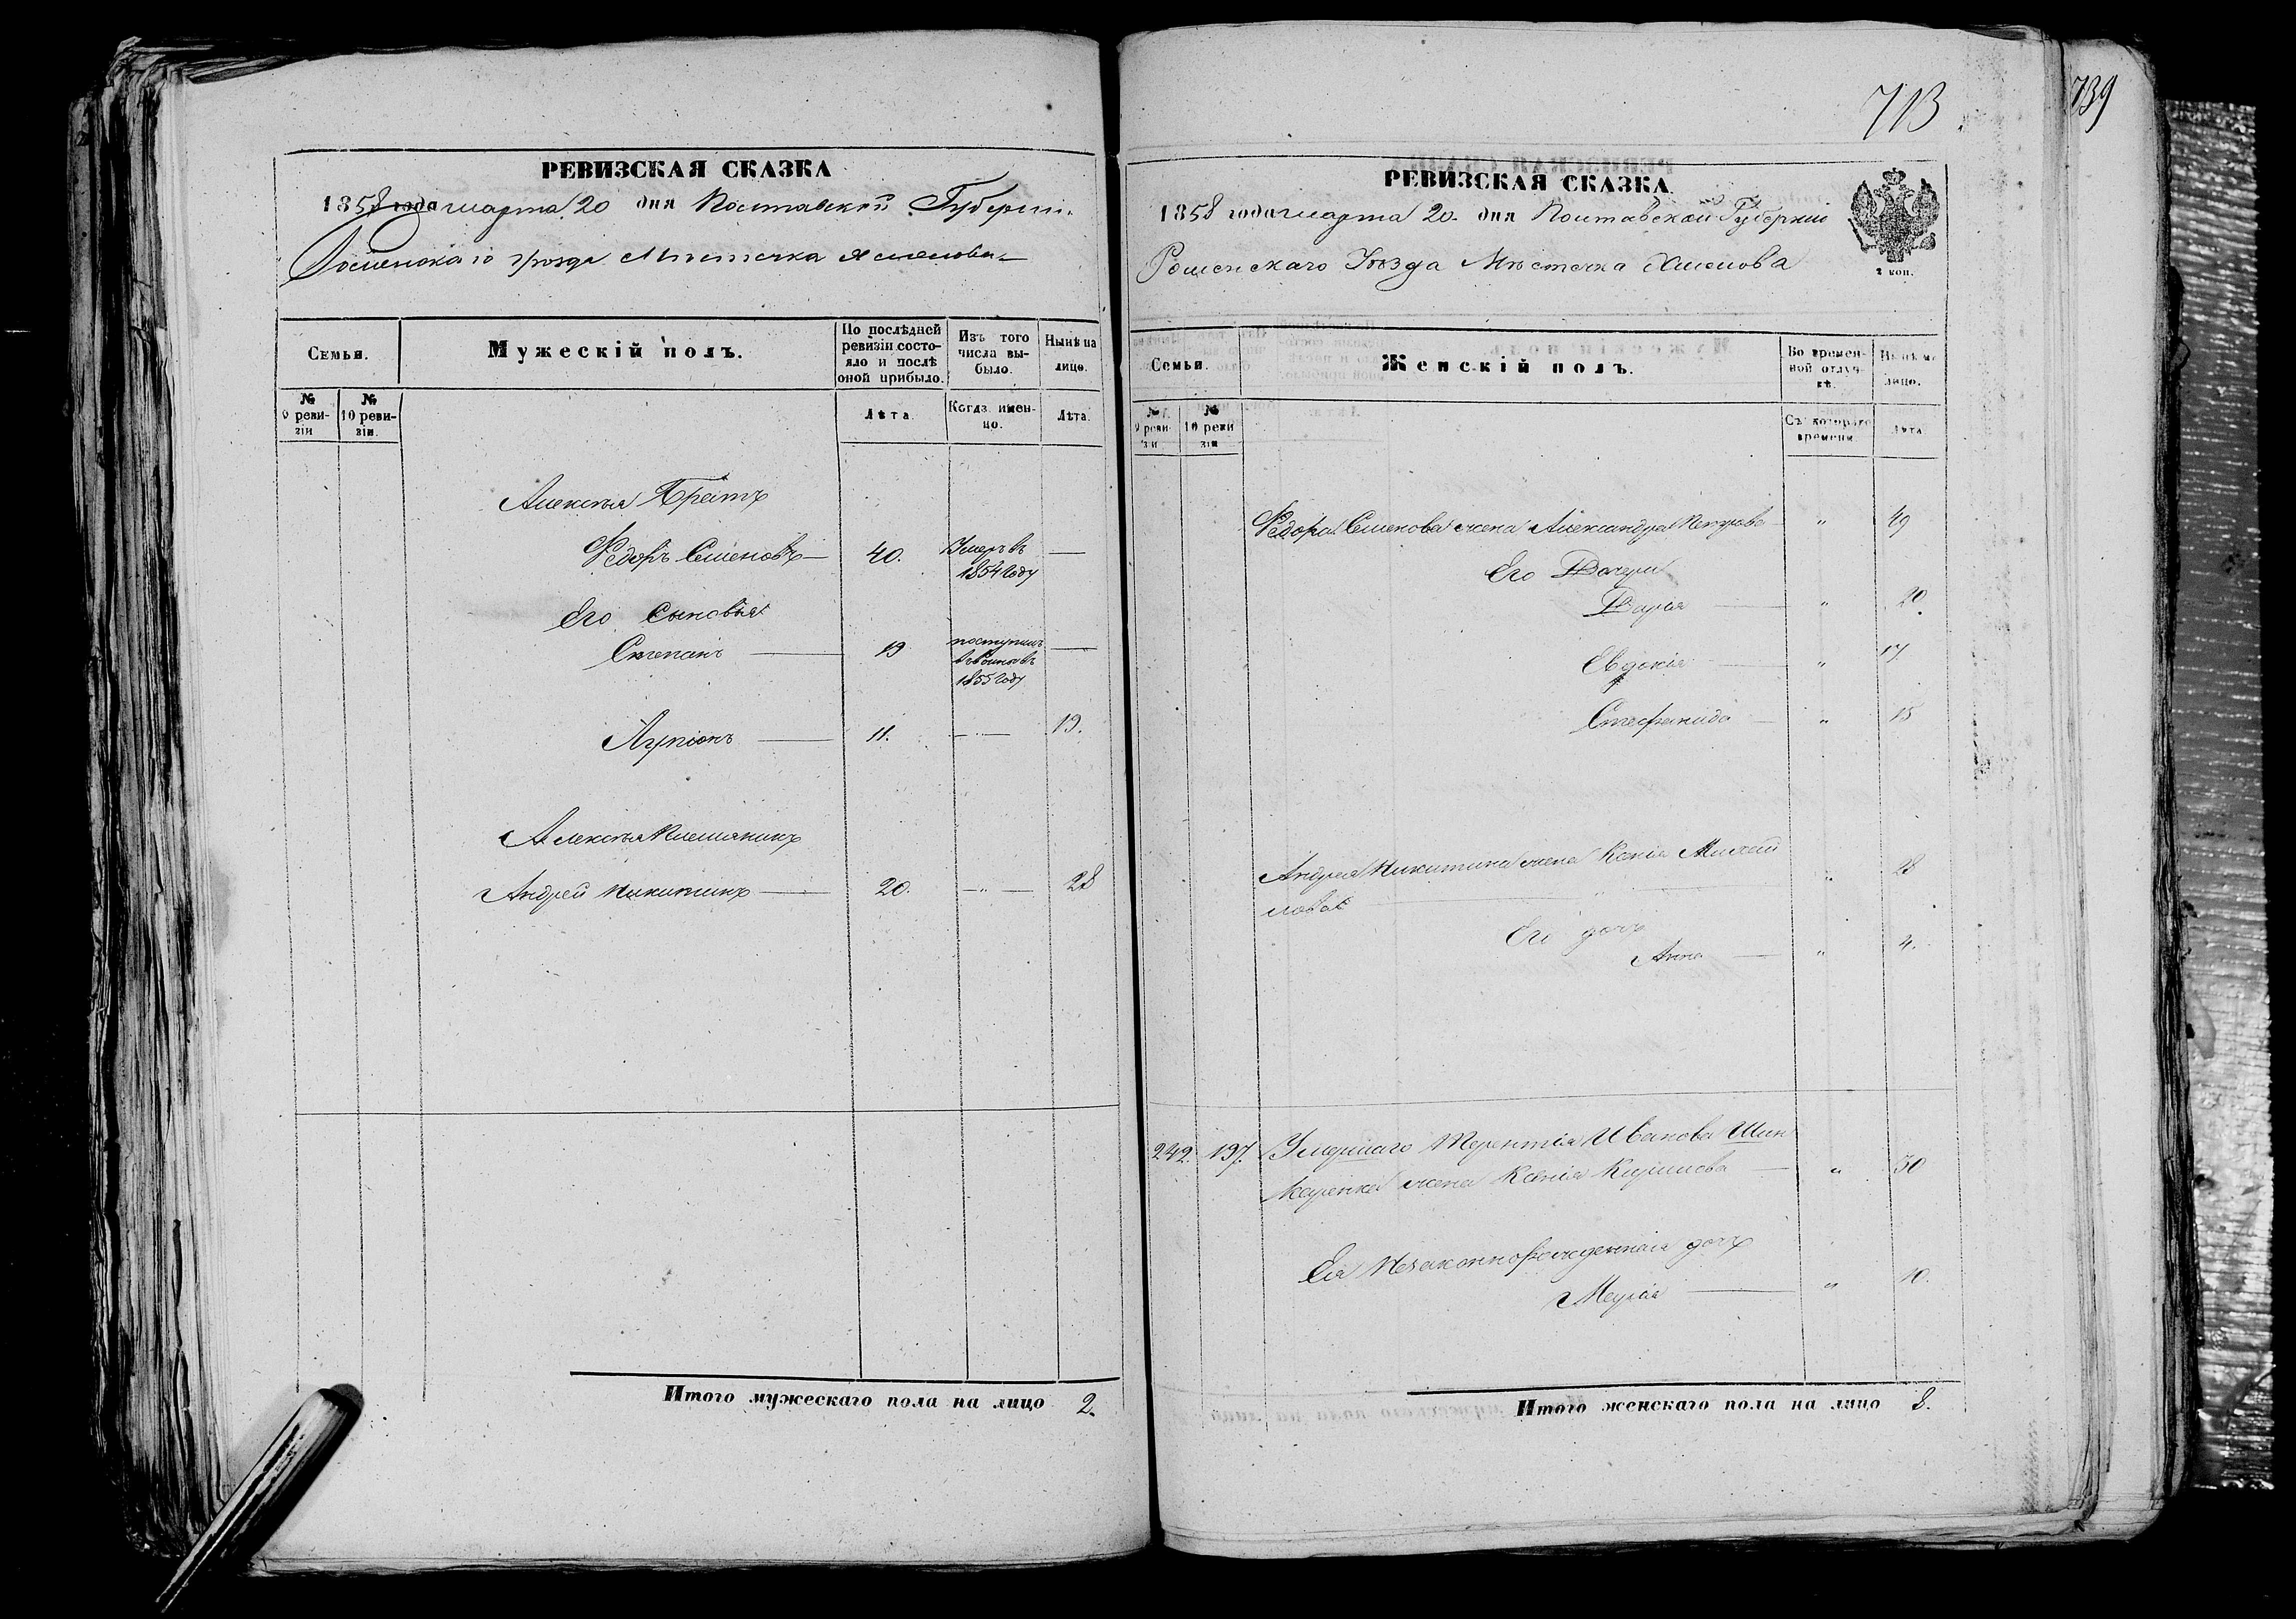 РЕВИЗСКАЯ СКАЗКА
1858 года марта 20 дня Полтавской Губернии
Роменскаго уѣзда Мѣстечка Хмелова
Семьи.
Мужескій полъ.
По послѣдней ревизіи состояло и послѣ оной прибыло.
Изъ того числа выбыло.
Нынѣ на лицо.
№ 9 ревизіи
№ 10 ревизіи.
Лѣта.
Когда именно.
Лѣта.
Алексѣя Братъ
Ѳедоръ Семеновъ — 40. Умеръ въ 1854 году —
Его сыновья
Степанъ — 19 поступилъ 1855 году —
Лупіонъ — 11. — 19.
Алексѣя Племяникъ
Андрей Никитинъ — 20. — „ — 28
Итого мужескаго пола на лицо 2.
713
739
РЕВИЗСКАЯ СКАЗКА
1858 года марта 20. дня Полтавской Губерніи
Роменскаго Уѣзда Мѣстечка Хмелова
2 коп.
Семьи.
Женскій полъ.
Во временной отлучкѣ.
Нынѣ на лицо.
№ 9 ревизіи
№ 10 ревизіи
Съ котораго времени.
Лѣта
Ѳедора Семенова жена Александра Петрова „ 49
Его Дочери
Дарія — „ 20.
Евдокія — „ 17.
Стефанида — „ 15
Андрея Никитина жена Ксенія Михай „ 28
лова
Его дочь
Анна — „ 4.
242. 197. Умершаго Терентія Иванова Шин
каренка жена Ксенія Кирилова — „ 30
Ея Незаконнорожденная дочь
Марія — „ 10.
Итого женскаго пола на лицо 8.